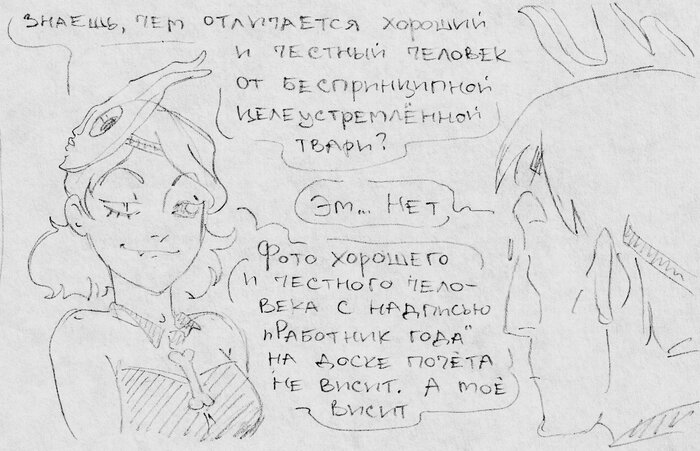 Знаешь, чем отличается хороший
и честный человек
от беспринципной
целеустремлённой
твари?
Эм... нет
Фото хорошего
и честного чело-
века с надписью
"Работник года"
на доске почёта
не висит. А моё
висит